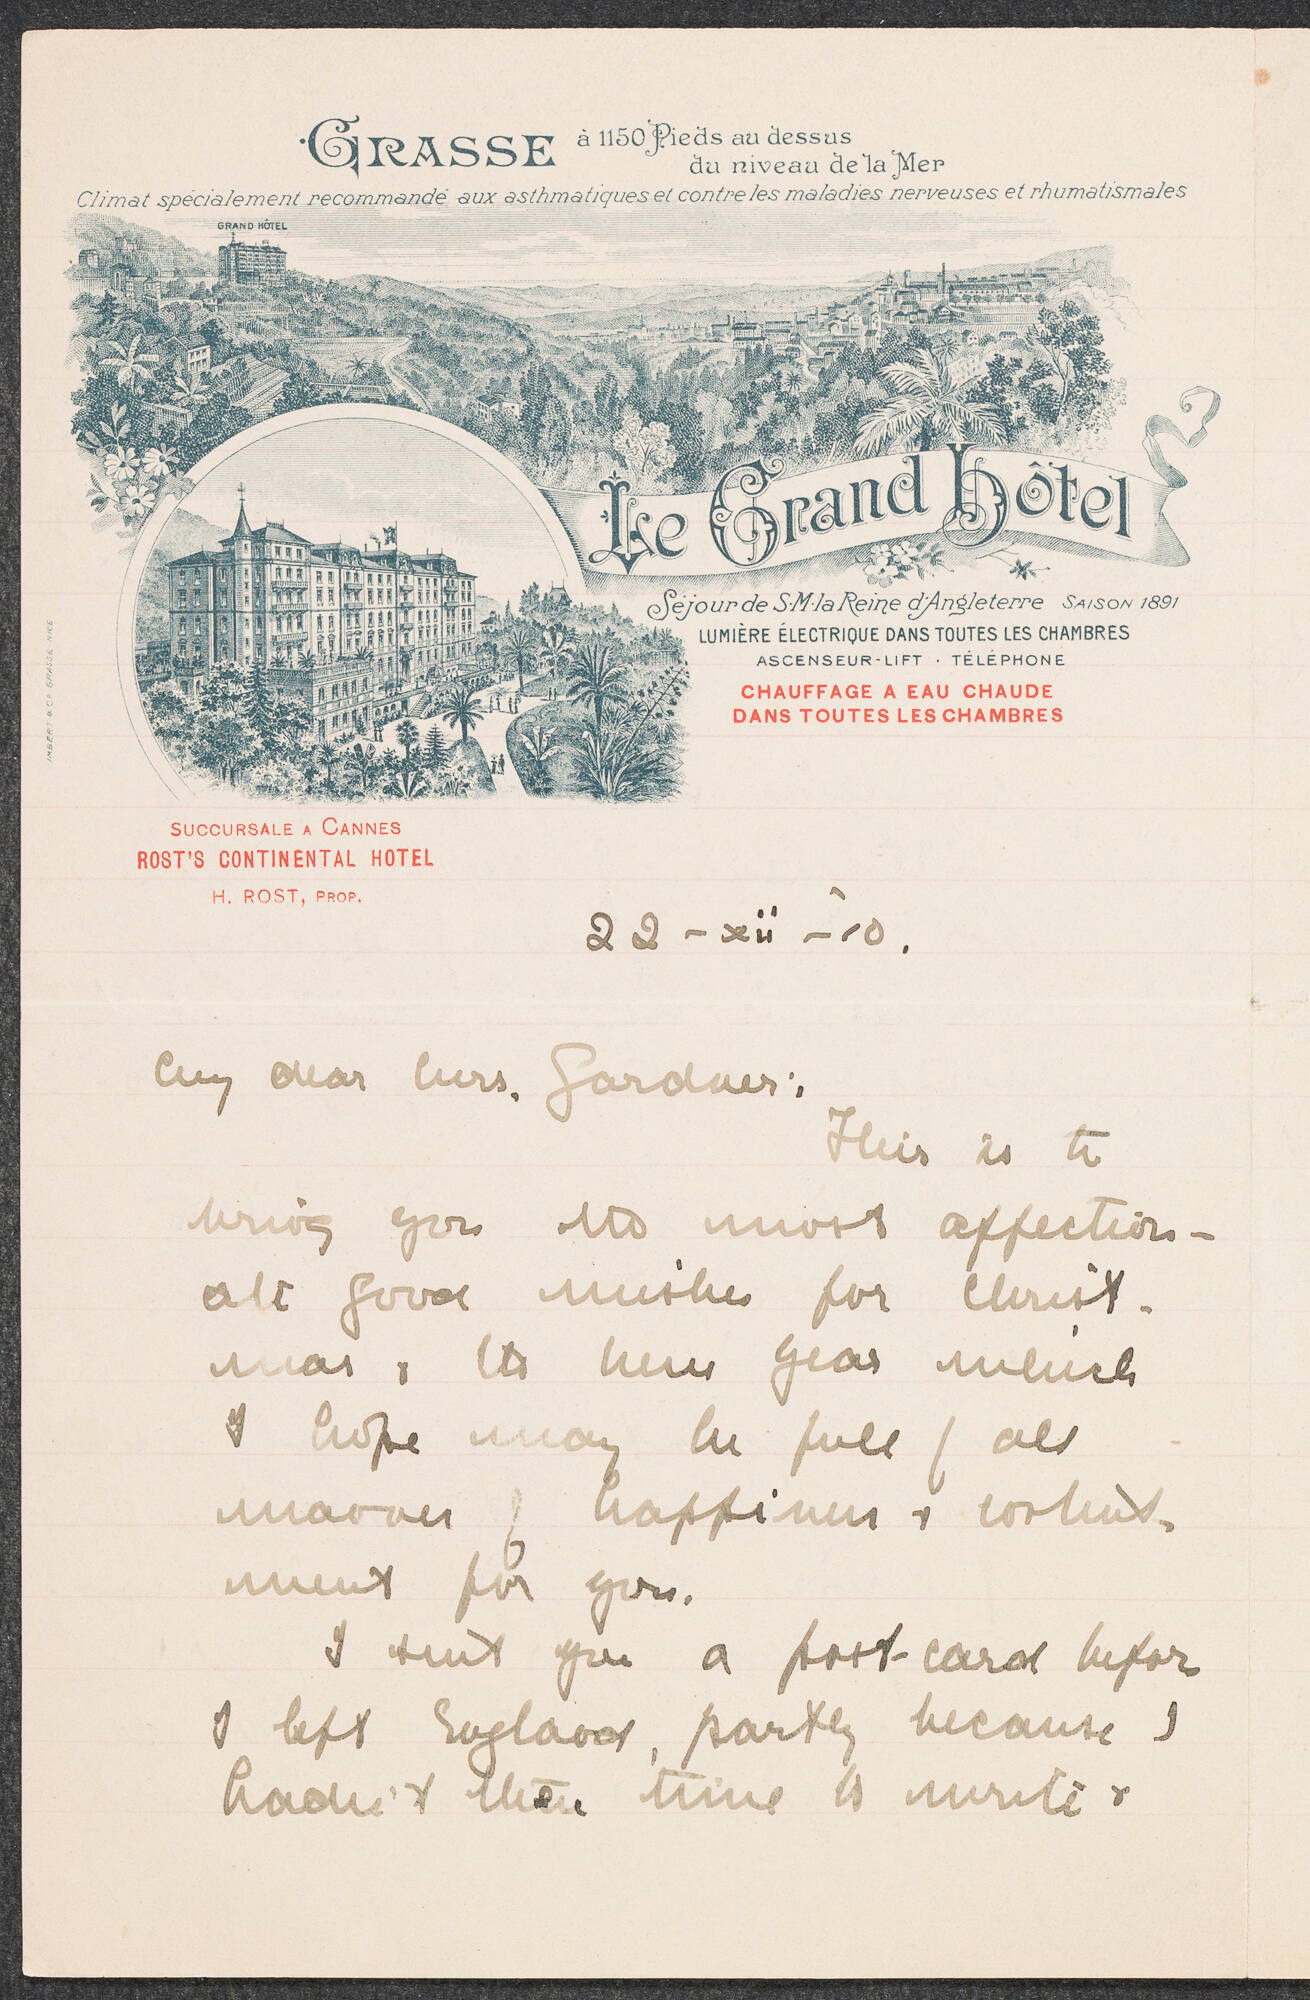 GRASSE à 1150 Pieds au dessus
du niveau de la Mer
Climat spécialement recommandé aux asthmatiques et contre les maladies nerveuses et rhumatismales
GRAND HÔTEL
Le Grand Hôtel
Séjour de S.M. la Reine d'Angleterre SAISON 1891
LUMIÈRE ÉLECTRIQUE DANS TOUTES LES CHAMBRES
ASCENSEUR-LIFT · TÉLÉPHONE
CHAUFFAGE A EAU CHAUDE
DANS TOUTES LES CHAMBRES
IMBERT & Co GRASSE-NICE
SUCCURSALE A CANNES
ROST'S CONTINENTAL HOTEL
H. ROST, PROP.
22 - xii - '10.
My dear Mrs. Gardner:
This is to
bring you the most affection-
ate good wishes for Christ-
mas & the New Year which
I hope may be full of all
manner of happiness & content-
ment for you.
I sent you a post-card before
I left England, partly because I
hadn't then time to write &